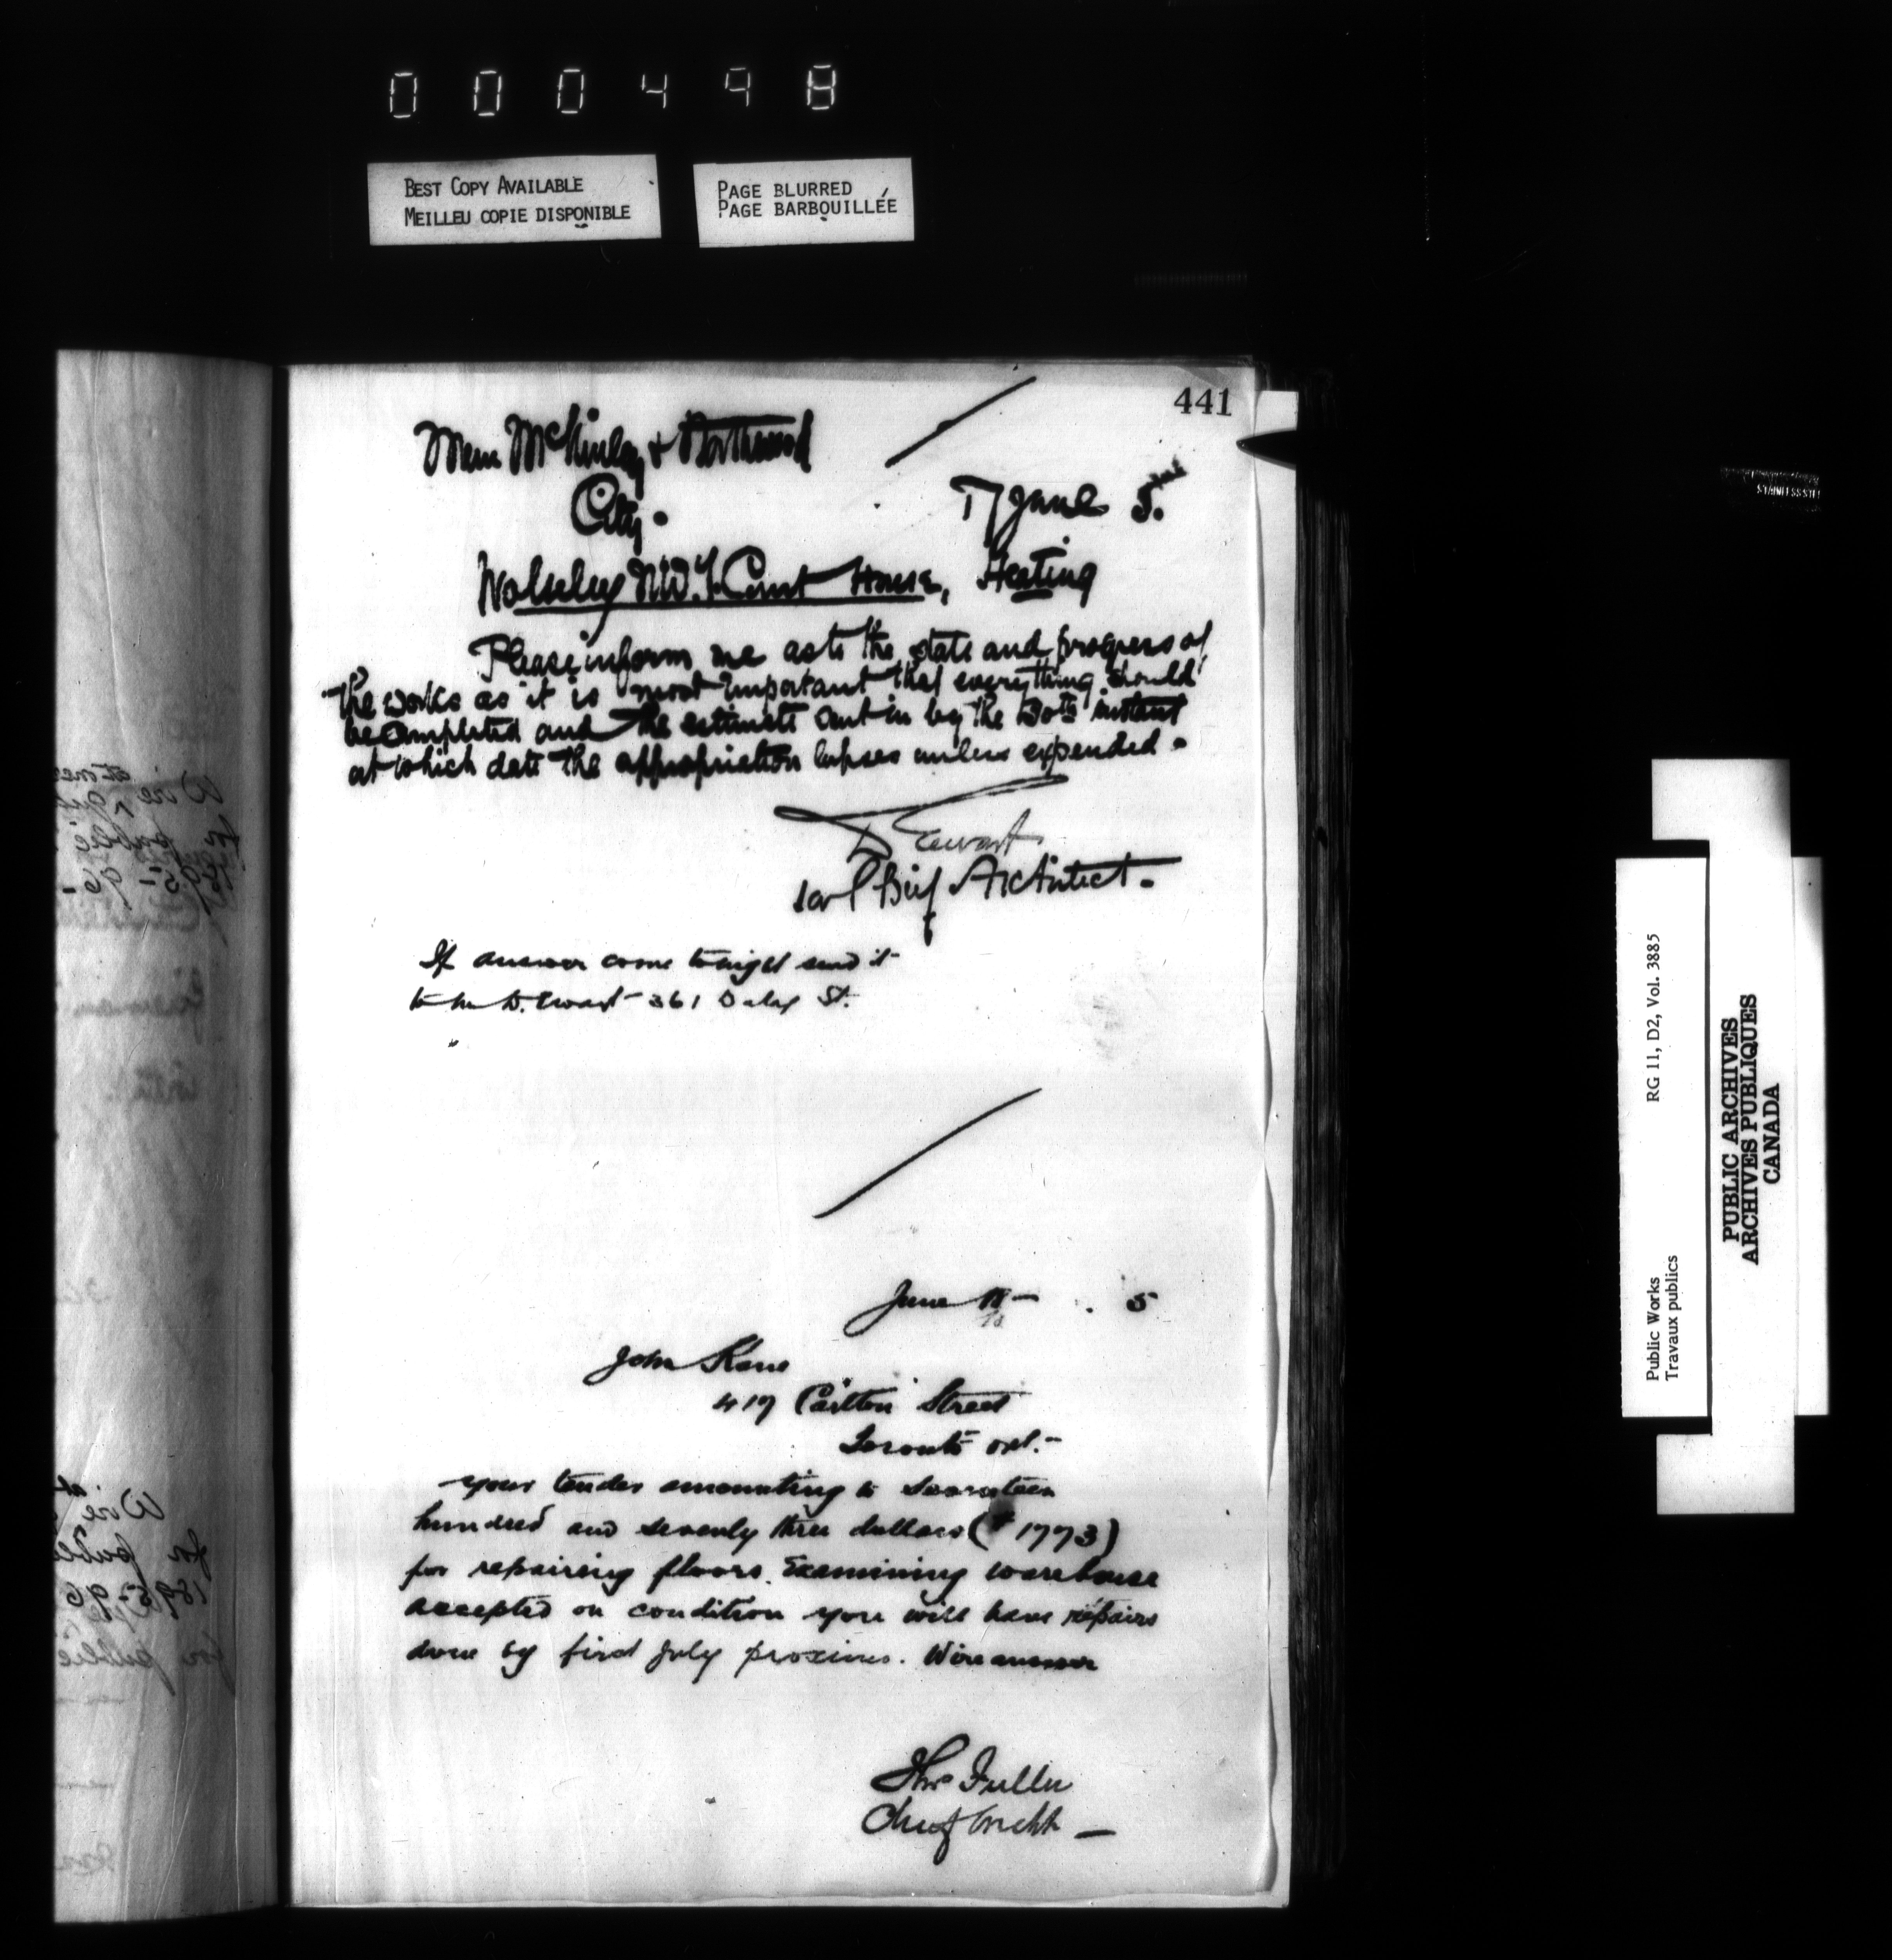 000498
BEST COPY AVAILABLE
MEILLEU COPIE DISPONIBLE
PAGE BLURRED
PAGE BARBOUILLÉE
441
Messrs McKinley & Northwood
City.
17 June 5.
Wolseley N.W.T. Court House, Heating
Please inform me as to the state and progress of
the works as it is most important that everything should
be completed and the estimate sent in by the 30th instant
at which date the appropriation lapses unless expended.
D Ewart
for Chief Architect.
If answer come tonight send it
to Mr D. Ewart 361 Daly St.
June 18 - 5
John Kane
417 Carlton Street
Toronto Ont.-
Your tender amounting to Seventeen
hundred and seventy three dollars ($1773)
for repairing floors Examining warehouse
accepted on condition you will have repairs
done by first July proximo. Wire answer
Thos Fuller
Chief Archt -
Public Works RG 11, D2, Vol. 3885
Travaux publics
PUBLIC ARCHIVES
ARCHIVES PUBLIQUES
CANADA